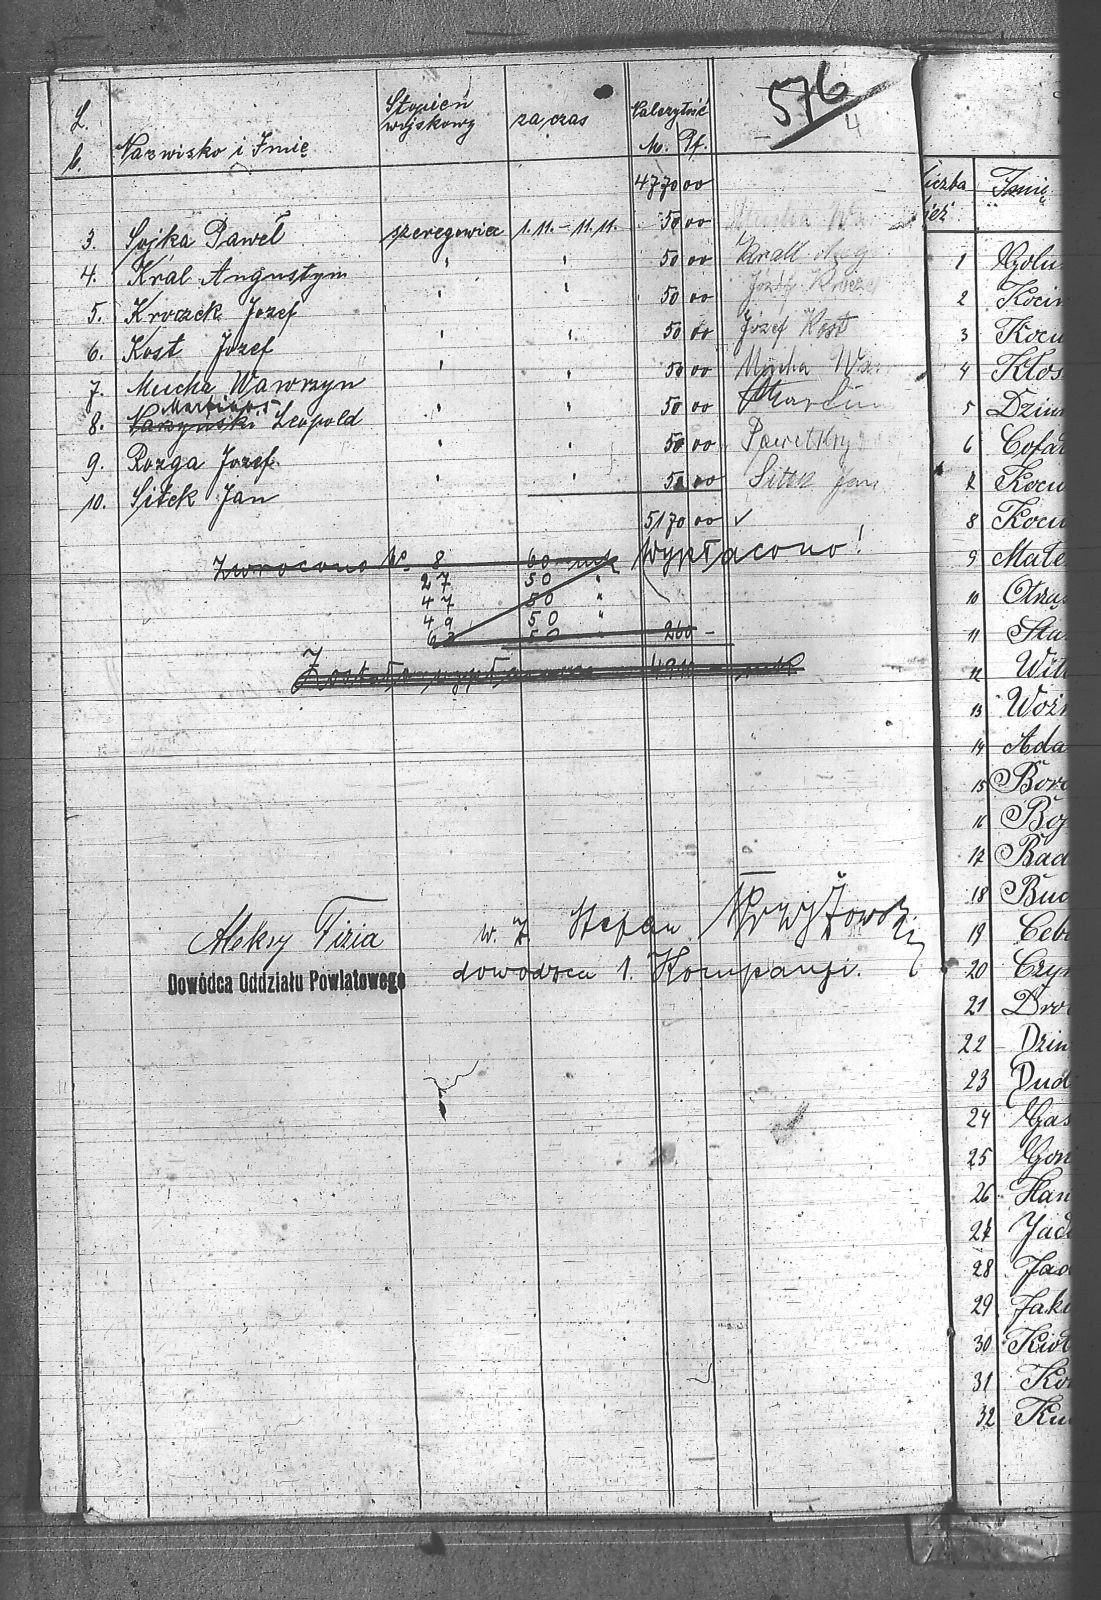 576
4
L. b. Nazwisko i Imię Stopień wojskowy za czas Należytość M. Pf.
4770 00
3. Sojka Paweł szeregowiec 1.11. – 11.11. 50 00 Mucha Wa
4. Kral Augustyn " " 50 00 Krall Aug
5. Kroczek Jozef " " 50 00 Józef
6. Kost Jozef " " 50 00 Józef Kost
7. Mucha Wawrzyn " " 50 00 Mucha Waw
8. Leopold " " 50 00 Marcin
9. Rozga Jozef " " 50 00 Paweł
10. Sitek Jan " " 50 00 Sitek Jan
5170 00 ✓
Zwrócono No 8 60 mk Wypłacono!
27 50 "
47 50 "
49 50 "
63 50 " 260 –
Została wypłacona mk
Aleksy Fizia w. z. Stefan
Dowódca Oddziału Powiatowego dowódzca 1. Kompanji.
Liczba Imię
1 Golu
2 Kocir
3 Kocu
4 Kłos
5 Dziu
6 Cofa
7 Kocu
8 Kocu
9 Małe
10 Otrzą
11 Sta
12 Wit
13 Woźn
14 Ada
15 Boro
16 Boj
17 Bad
18 Bud
19 Ceb
20 Czy
21 Dro
22 Dzin
23 Dud
24 Gas
25 Gon
26 Han
27 Jac
28 Jad
29 Jak
30 Kio
31 Ko
32 Ku